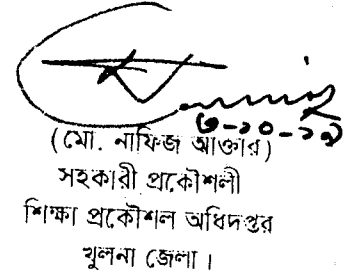 ৩-১০-১৯
(মো. নাফিজ আক্তার)
সহকারী প্রকৌশলী
শিক্ষা প্রকৌশল অধিদপ্তর
খুলনা জেলা।